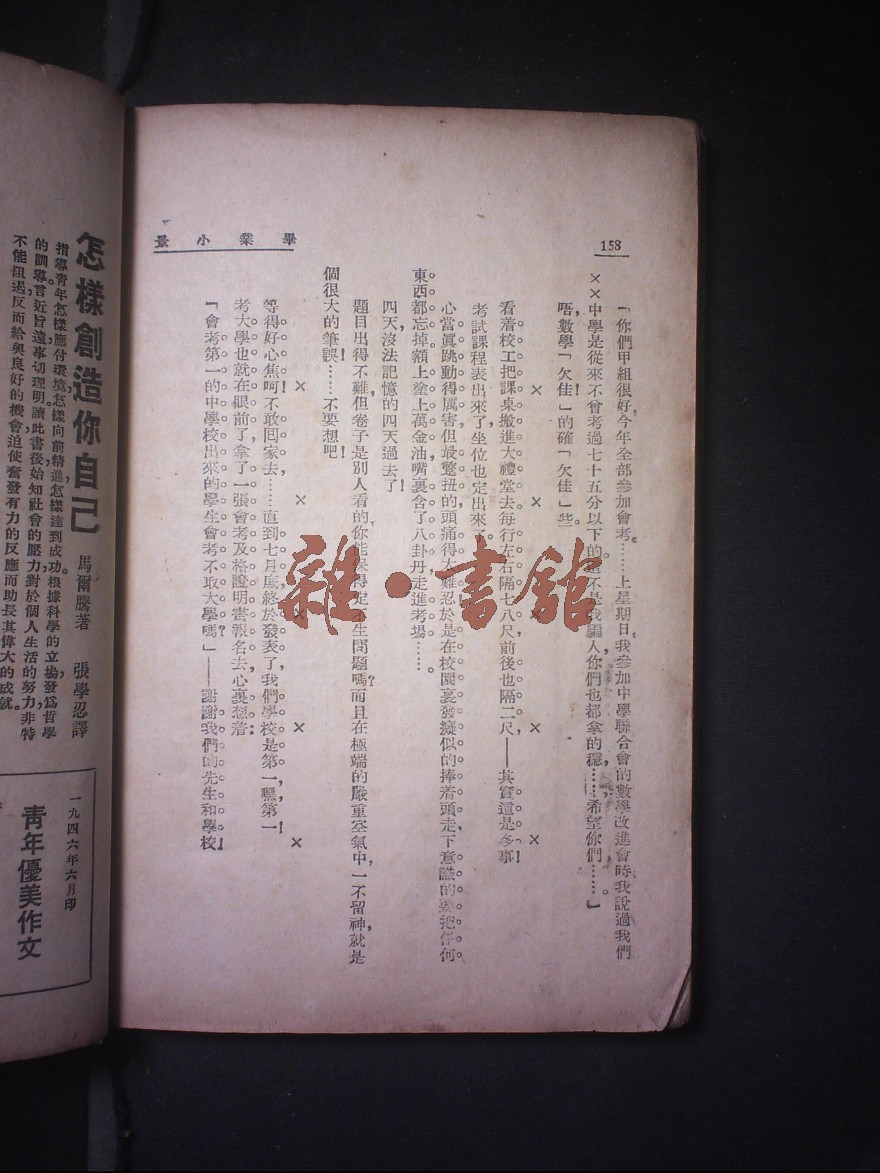 158
畢業小景
「你們甲組很好，今年全部參加會考……上星期日，我參加中學聯合會的數學改進會時，我說過我們
××中學是從來不會考過七十五分以下的，不是我騙人，你們也都拿的穩……希望你們……。」
唔，數學「欠佳」的確「欠佳」些。
× × × × ×
看着校工把課桌搬進大禮堂去，每行左右隔七八尺，前後也隔二尺——其實這是多事！
考試課程表出來了，坐位也定出來了。
心當眞跳動得厲害，但最蹩扭的頭痛得太難忍，於是在校園裏發癡似的捧着頭走，下意識的要把任何
東西都忘掉，額上塗上萬金油，嘴裏含了八卦丹，走進考場……。
四天，沒法記憶的四天過去了！
題目出得不難，但卷子是別人看的，你能保得定不生問題嗎？而且在極端的嚴重空氣中，一不留神，就是
個很大的筆誤……不要想吧！
× × × × ×
等得好心焦呵！不敢回家去……直到七月底終於發表了，我們學校是第一，嘿，第一！
考大學也就在眼前了，拿了一張會考及格證明書報名去，心裏想着：
「會考第一的中學校出來的學生會考不取大學嗎？」——謝謝我們的先生和學校！
怎樣創造你自己
馬爾騰著 張學忍譯
指導靑年怎樣應付環境，怎樣向前精進，怎樣達到成功。根據科學的立塲，發爲哲學
的訓導，言近旨遠，事切理明，讀此書後，始知社會的壓力，對於個人生活的努力，非特
不能阻遏，反而給與良好的機會，迫使奮發有力的反應，而助長其偉大的成就。
一九四六年六月印
靑年優美作文
雜·書館